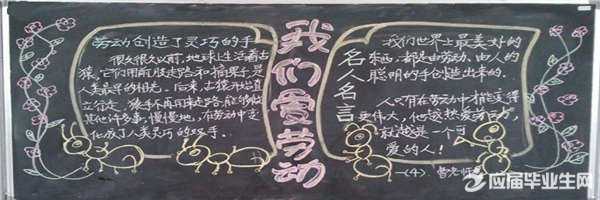 劳动创造了灵巧的手
很久很久以前,地球上生活着古
猿。它们用前肢走路和摘果子,是
人类最早的祖先。后来,古猿开始直
立行走,猿手不再用来走路,能够做
其他许多事,慢慢地,在劳动中变
化成了人类灵巧的双手。
我们爱劳动
名人名言
我们世界上最美好的
东西,都是由劳动、由人的
聪明的手创造出来的。
人只有在劳动中才能变得
更伟大,他越热爱劳动,
就越是一个可
爱的人!
一(4)
应届毕业生网